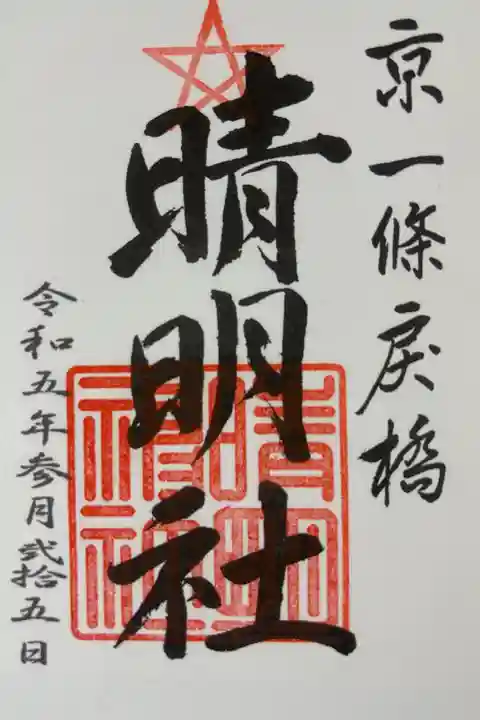 京一條戻橋
晴明社
晴明
神社
令和五年参月弐拾五日